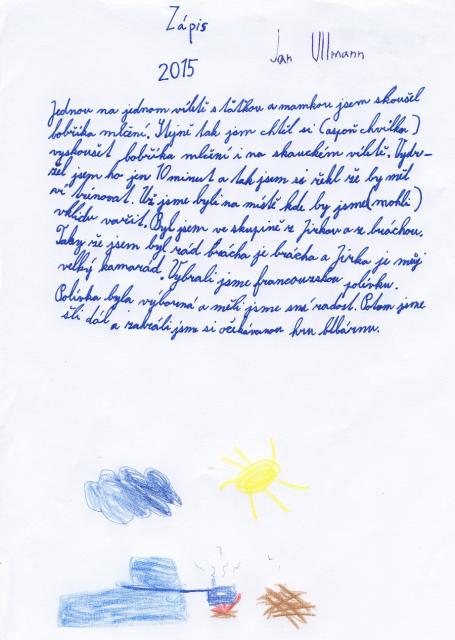 Zápis
Jan Ullmann
2015
Jednou na jednom vílětě s tátkou a mamkou jsem skoušel
bobříka mlčení. Stejně tak jsm chtěl si (aspoň chvilku)
vyskoušet bobříka mlčení i na skauckém vílětě. Vydr-
žel jsem ho jen 10 minut a tak jsem si řekl že by měl
víc trénovat. Už jsme byli na místě kde by jsme (mohli)
vklidu vařit. Byl jsem ve skupině z Jirkou a z bráchou.
Taky že jsem byl rád brácha je brácha a Jirka je můj
velký kamarád. Vybrali jsme francouzskou polívku.
Polívka byla vyborná a měli jsme sní radost. Potom jsme
šli dál a zahráli jsme si očekávanou hru